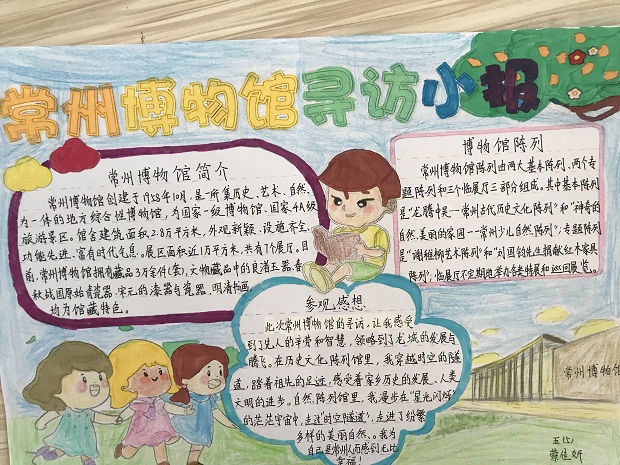 常州博物馆寻访小报
常州博物馆简介
常州博物馆创建于1958年10月,是一所集历史、艺术、自然
为一体的地方综合性博物馆,为国家一级博物馆、国家4A级
旅游景区。馆舍建筑面积2.8万平方米,外观新颖、设施齐全、
功能先进、富有时代气息。展区面积近1万平方米,共有7个展厅。目
前,常州博物馆拥有藏品3万余件(套),文物藏品中的良渚玉器、春
秋战国原始青瓷器、宋元的漆器与瓷器、明清书画
均为馆藏特色。
博物馆陈列
常州博物馆陈列由两大基本陈列、两个专
题陈列和三个临展厅三部分组成。其中基本陈列
是“龙腾中吴—常州古代历史文化陈列”和“神奇的
自然、美丽的家园—常州少儿自然陈列”;专题陈列
是“谢稚柳艺术陈列”和“刘国钧先生捐献红木家具
陈列”;临展厅不定期地举办各类特展和巡回展览。
参观感想
此次常州博物馆的寻访,让我感受
到了先人的辛劳和智慧,领略到了龙城的发展与
腾飞。在历史文化陈列馆里,我穿越时空的隧
道,踏着祖先的足迹,感受着家乡历史的发展、人类
文明的进步。自然陈列馆里,我漫步在“星光闪烁”
的茫茫宇宙中,走进“时空隧道”,走进了纷繁
多样的美丽自然。。我为
自己是常州人而感到无比
幸福!
常州博物馆
五(5)
蔡佳妍